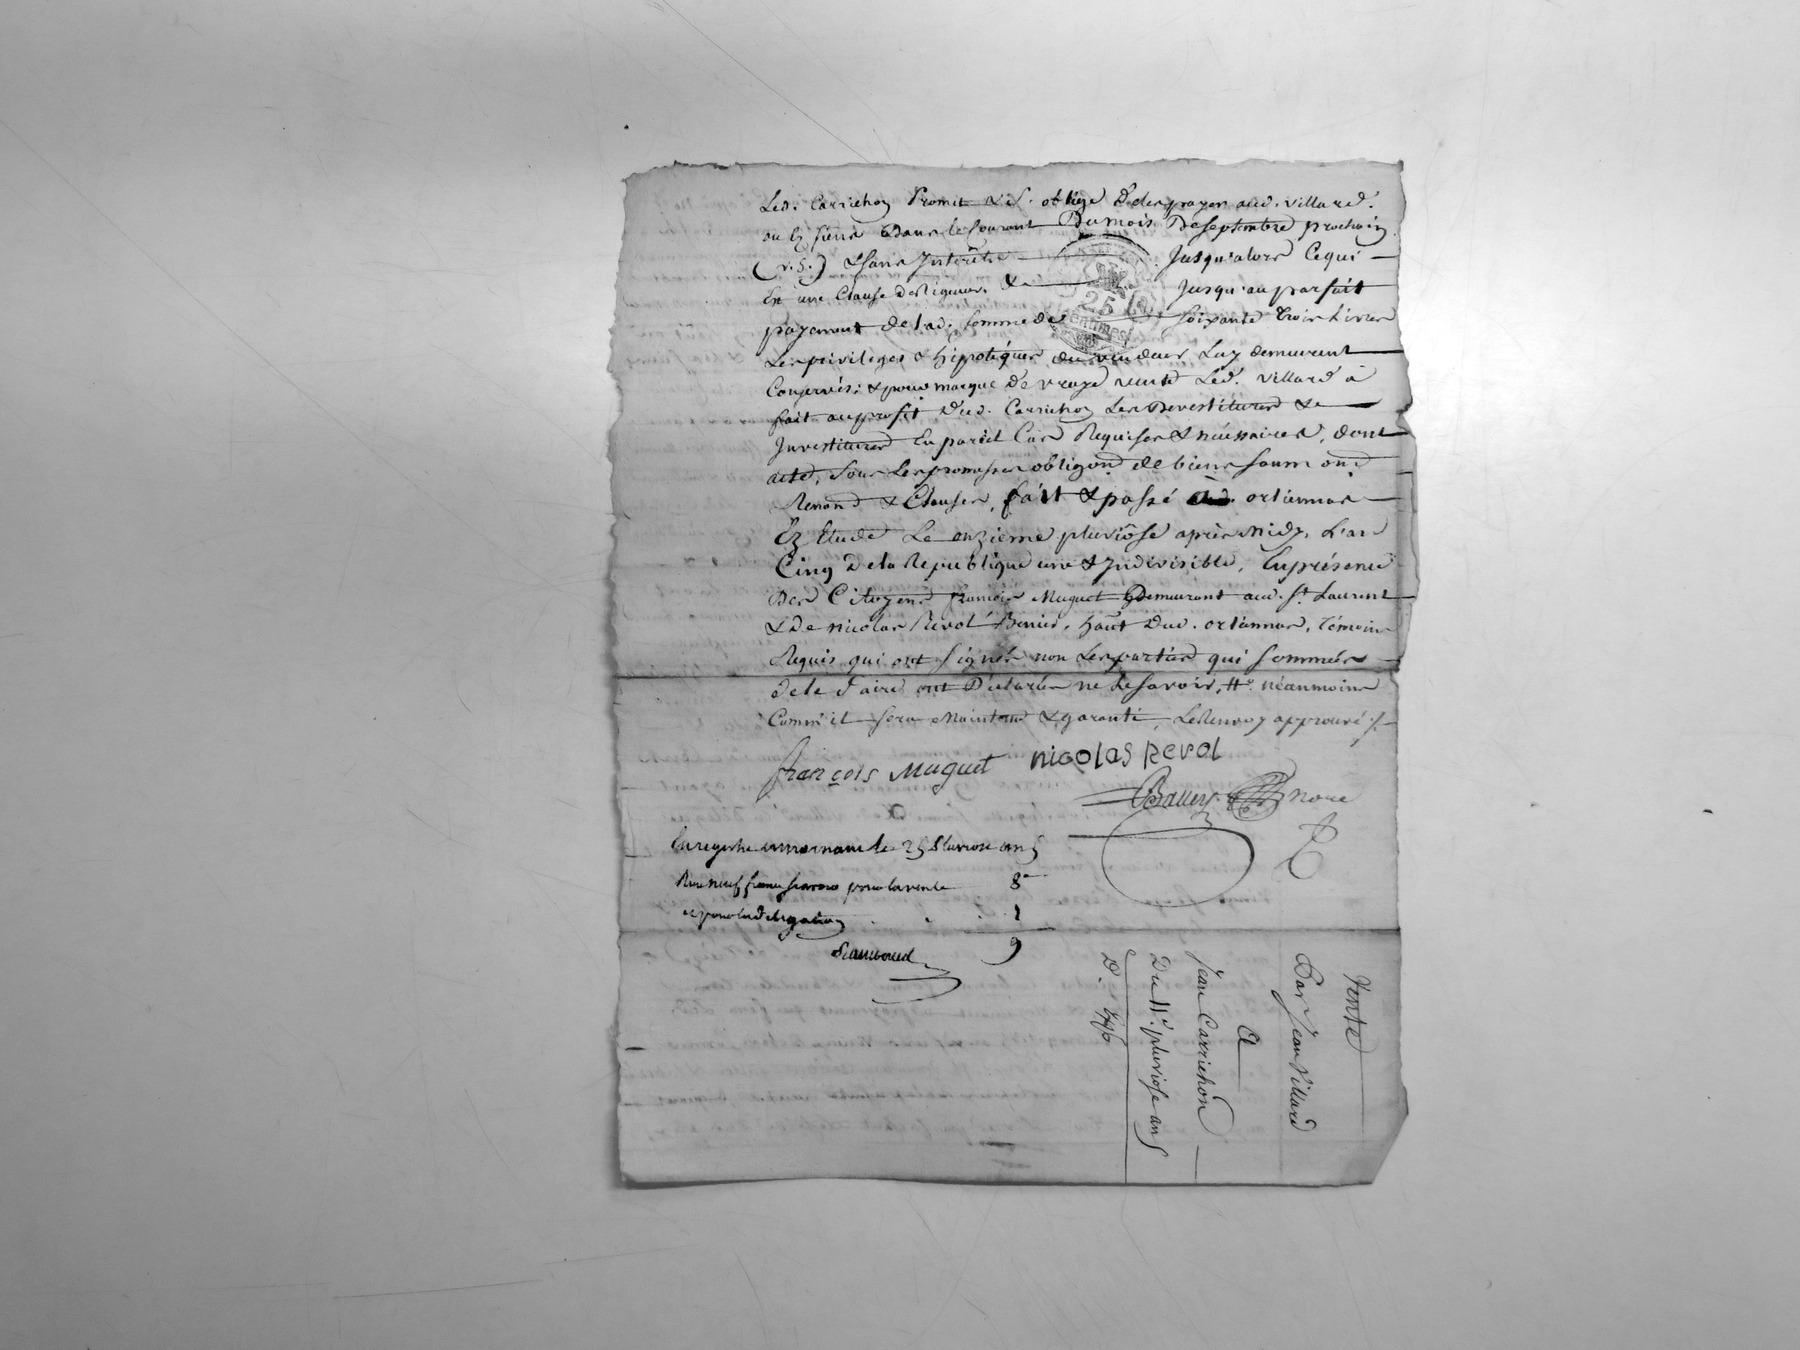 Led. Carrichon Promit & s'oblige de les payer aud. Villard
ou Ez siens Dans le Courant Du mois De septembre prochain
(v.s.) & sans Interêts Jusqu'alors Ce qui
Est une Clause de Rigueur. & Jusqu'au parfait
payement de lad. somme de soixante trois Livres
Les privileges & hipotéques du vendeur Luy demeurent
Conservés; & pour marque de vraye vente Led. Villard à
fait au profit Dud. Carrichon Les Devestitures &
Investitures En pareil Cas Requises & nécessaires, dont
acte, sous Les promesses obligons de biens soumons
Renons & Clauses, fait & passé ortiemas
Ez Etude Le onzieme pluviôse après midy, L'an
Cinq de la Republique une & Indivisible, En présence
Des Citoyens françois Muguet Demeurant aud. St. Laurent
& De nicolas Revol haut Dud. , témoins
Requis qui ont signés non Les parties qui sommées
de le faire ont Déclarées ne le savoir, néanmoins
Comm'il sera Maintenu & garanti, Le Renvoy approuvé ./.
françois Muguet nicolas Revol
Balley nore
Enregistré le 25 Pluviose an 5
Reçu neuf francs pour la vente 8
et pour la délégation 1
9
Vente
Par Jean Villard
A
Jean Carrichon
Du 11e. pluviose an 5
D.